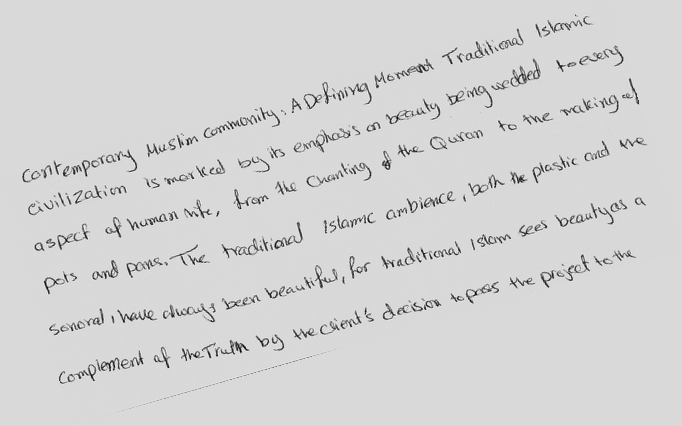 Contemporary Muslim Community: A Defining Moment Traditional Islamic
civilization is marked by its emphasis on beauty being wedded to every
aspect of human life, from the Chanting of the Quran to the making of
pots and pans. The traditional Islamic ambience, both the plastic and the
sonoral, have always been beautiful, for traditional Islam sees beauty as a
Complement of the Truth by the client's decision to pass the project to the